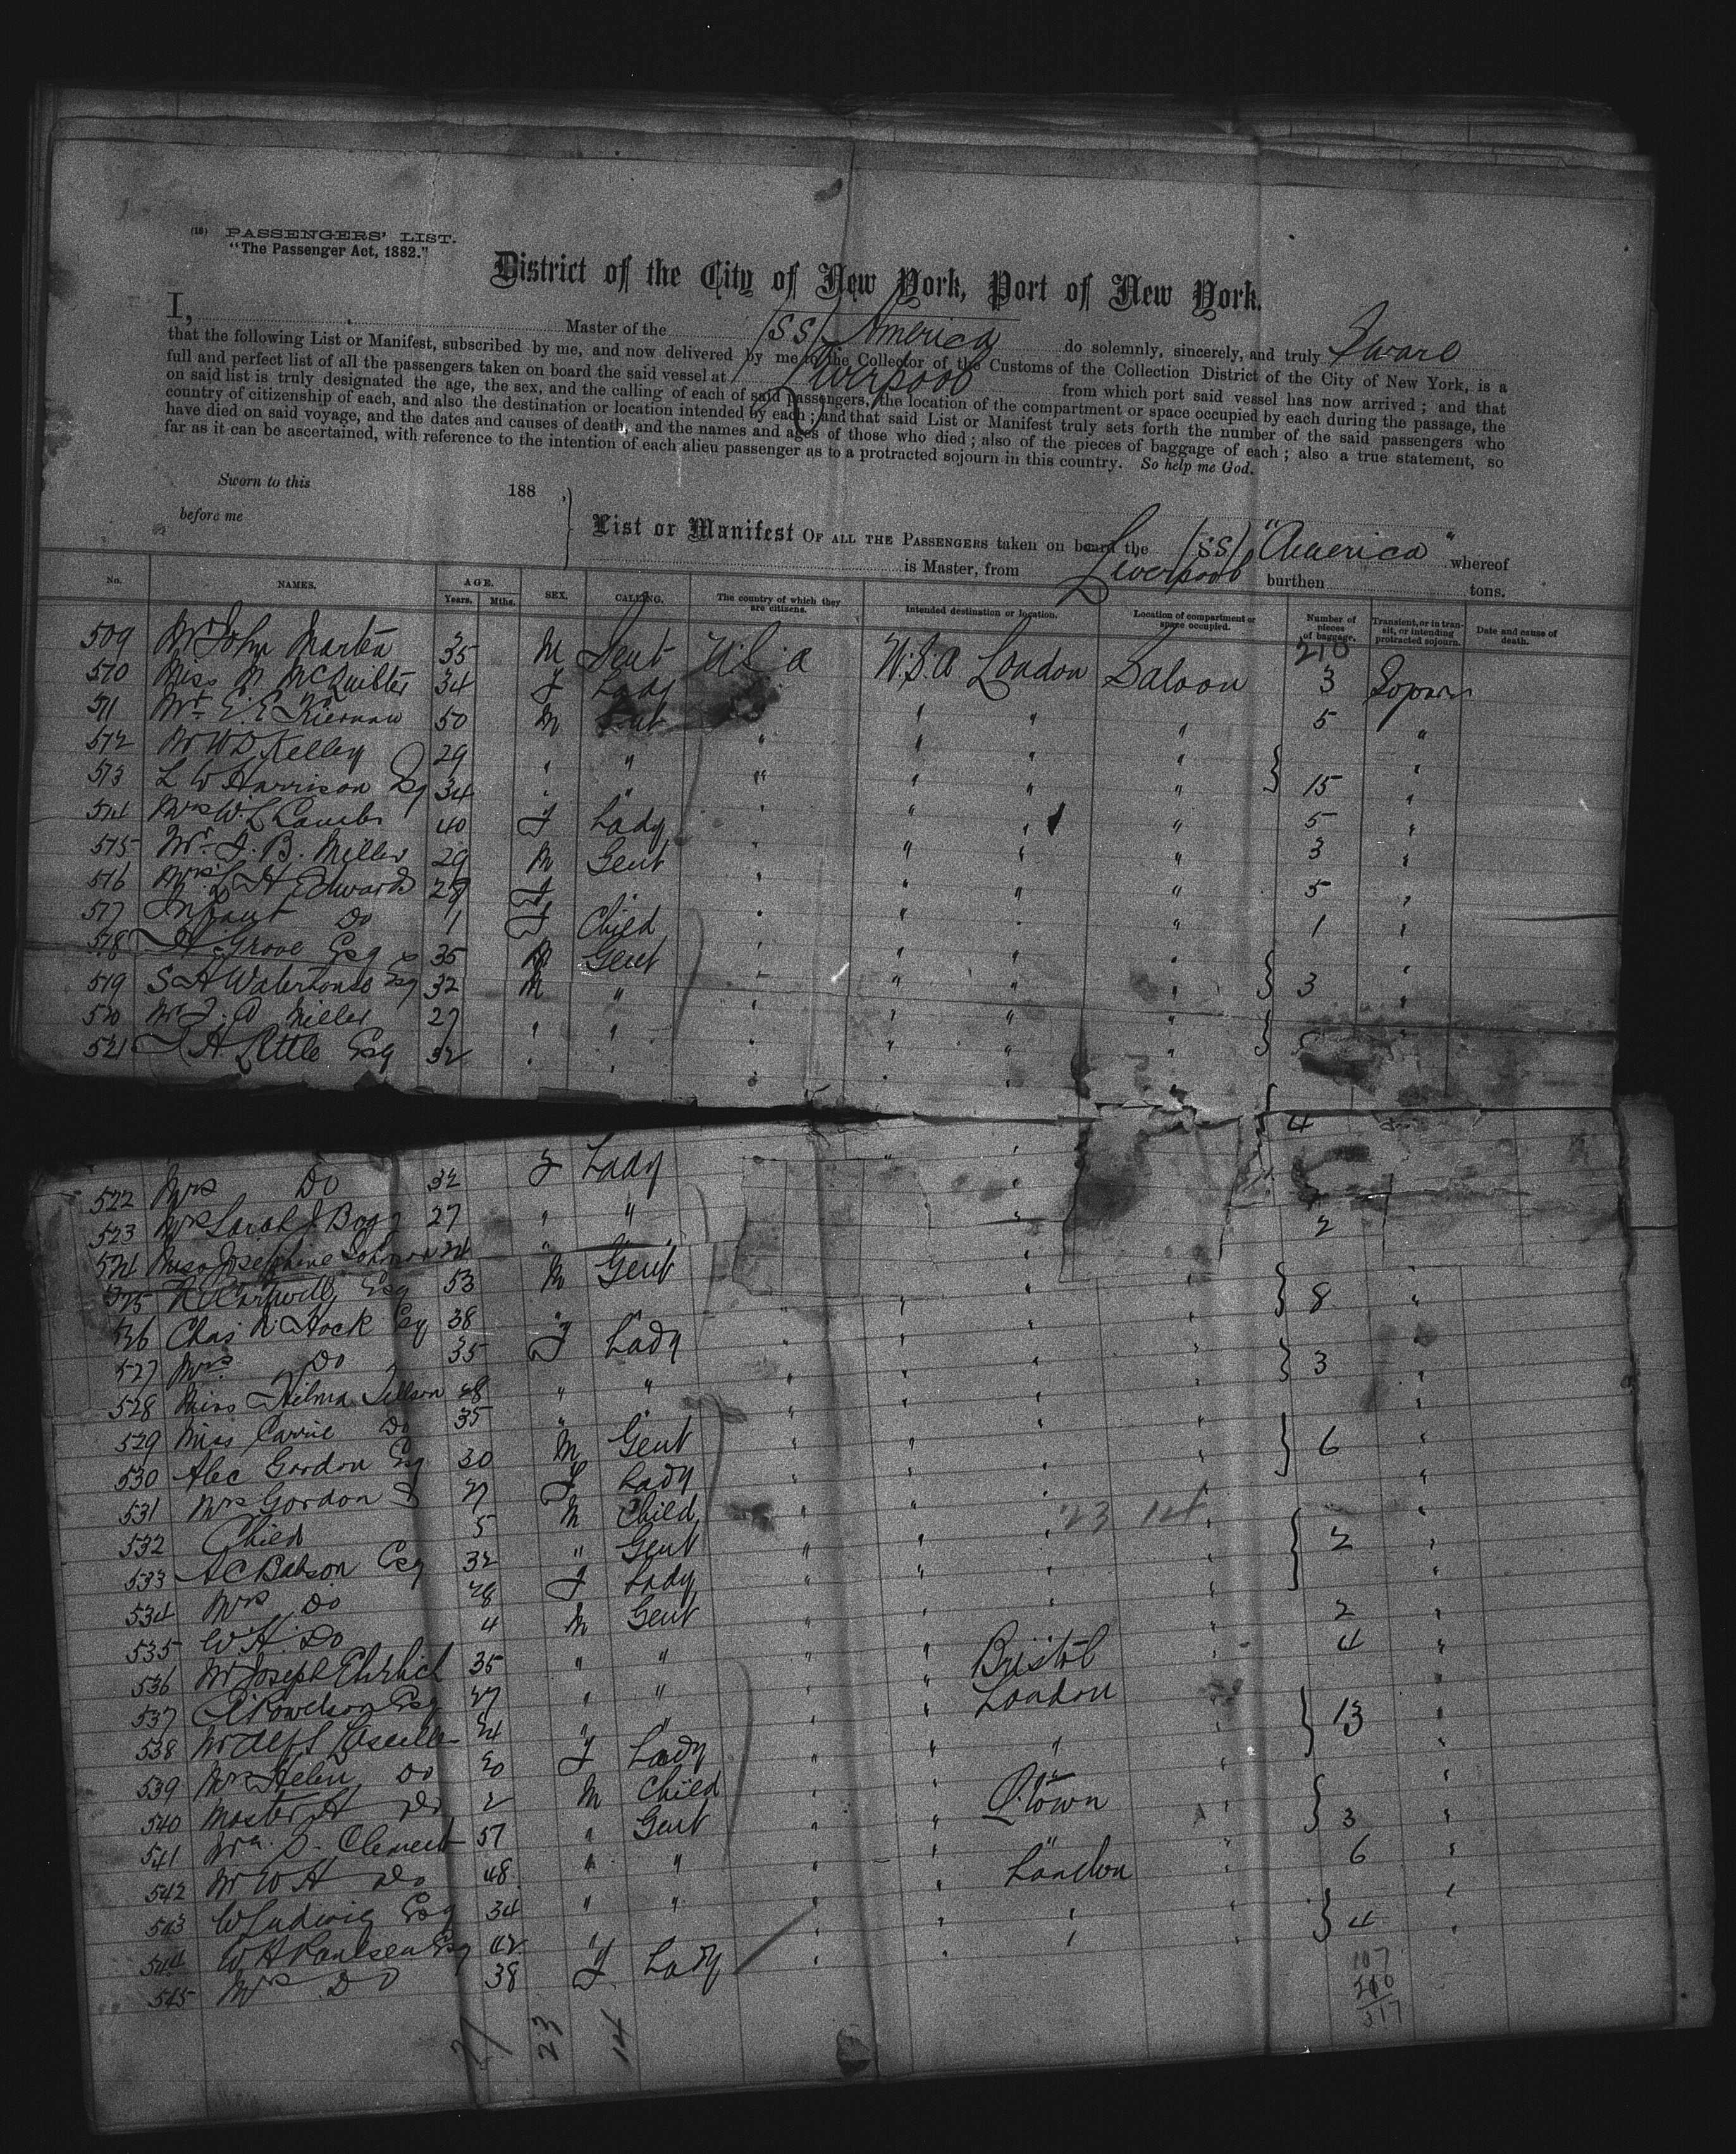 (18) PASSENGERS' LIST.
"The Passenger Act, 1882."
District of the City of New York, Port of New York.
I, Master of the (SS) America do solemnly, sincerely, and truly Swear
that the following List or Manifest, subscribed by me, and now delivered by me to the Collector of the Customs of the Collection District of the City of New York, is a
full and perfect list of all the passengers taken on board the said vessel at Liverpool from which port said vessel has now arrived; and that
on said list is truly designated the age, the sex, and the calling of each of said passengers, the location of the compartment or space occupied by each during the passage, the
country of citizenship of each, and also the destination or location intended by each; and that said List or Manifest truly sets forth the number of the said passengers who
have died on said voyage, and the dates and causes of death, and the names and ages of those who died; also of the pieces of baggage of each; also a true statement, so
far as it can be ascertained, with reference to the intention of each alien passenger as to a protracted sojourn in this country. So help me God.
Sworn to this 188 ,
before me
List or Manifest OF ALL THE PASSENGERS taken on board the (SS) "America" whereof
is Master, from Liverpool burthen tons.
No. NAMES. AGE. Years. Mths. SEX. CALLING. The country of which they are citizens. Intended destination or location. Location of compartment or space occupied. Number of pieces of baggage. Transient, or in transit, or intending protracted sojourn. Date and cause of death.
210
509 Mr John Martin 35 M Gent U.S.a U.S.A London Saloon 3
510 Miss M 34 F Lady " " " 5 "
511 Mr E.E. Kiernan 50 M Gent " " " "
512 Mr W D Kelley 29 " " " " " "
513 L W Harrison Esq 34 " " " " " 15 "
514 Mrs W. L 40 F Lady " " " 5 "
515 Mr J. B. Miller 29 M Gent " " " 3 "
516 Mrs L H Edwards 29 F " " " 5 "
517 Infant Do 1 F Child " " " 1 "
518 H Grove Esq 35 M Gent " " "
519 S H Waterhouse Esq 32 M " " " " 3 "
520 Mr J. A Miller 27 " " " " "
521 J H Little Esq 32 " " " "
4
522 Mrs Do 32 F Lady
523 Mrs Sarah J. Bogg 27 " " 2
524 Miss Josephine Johnson 24 " "
525 Esq 53 M Gent
526 Chas N. Hock Esq 38 " 8 "
527 Mrs Do 35 F Lady
528 Miss Hilma 28 " " 3 "
529 Miss Carrie Do 35 "
530 Alec Gordon Esq 30 M Gent 6 "
531 Mrs Gordon 27 F Lady
532 Child 5 M Child 23 14
533 A C Babson Esq 32 " Gent 2 "
534 Mrs Do 28 F Lady
535 W. H. Do 4 M Gent 2 "
536 Mr Joseph Ehrlich 35 " " Bristol 4 "
537 Esq 27 " " London
538 Mr Alf L 24 " " " 13 "
539 Mrs Helen Do 20 F Lady "
540 Master H Do 2 M Child "
541 Clement 57 " Gent Q.town 3 "
542 Mr W H Do 48 " " " 6 "
543 W Ludwig Esq 34 " " London
544 W H Paulsen Esq 42 " " 4 "
545 Mrs DO 38 F Lady "
107
210
317
23 14